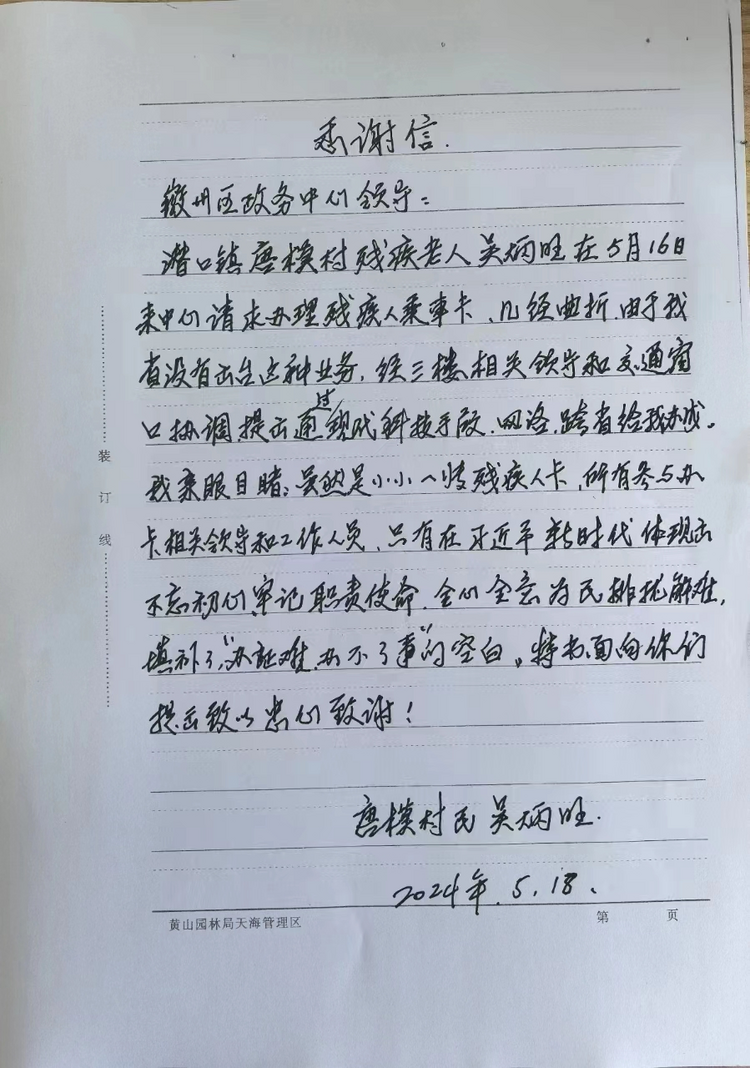 感谢信.
徽州区政务中心领导：
潜口镇唐模村残疾老人吴炳旺在5月16日
来中心请求办理残疾人乘车卡、几经曲折.由于我
省没有出台这种业务.经三楼相关领导和交通窗
口协调提出通过现代科技手段.网络.跨省给我办成。
我亲眼目睹：虽然是小小一张残疾人卡,所有参与办
卡相关领导和工作人员、只有在习近平新时代体现出
不忘初心牢记职责使命.全心全意为民排忧解难,
填补了“办证难.办不了事”的空白。特书面向你们
提出致以忠心致谢！
唐模村民吴炳旺.
2024年.5.18.
装订线
黄山园林局天海管理区 第 页